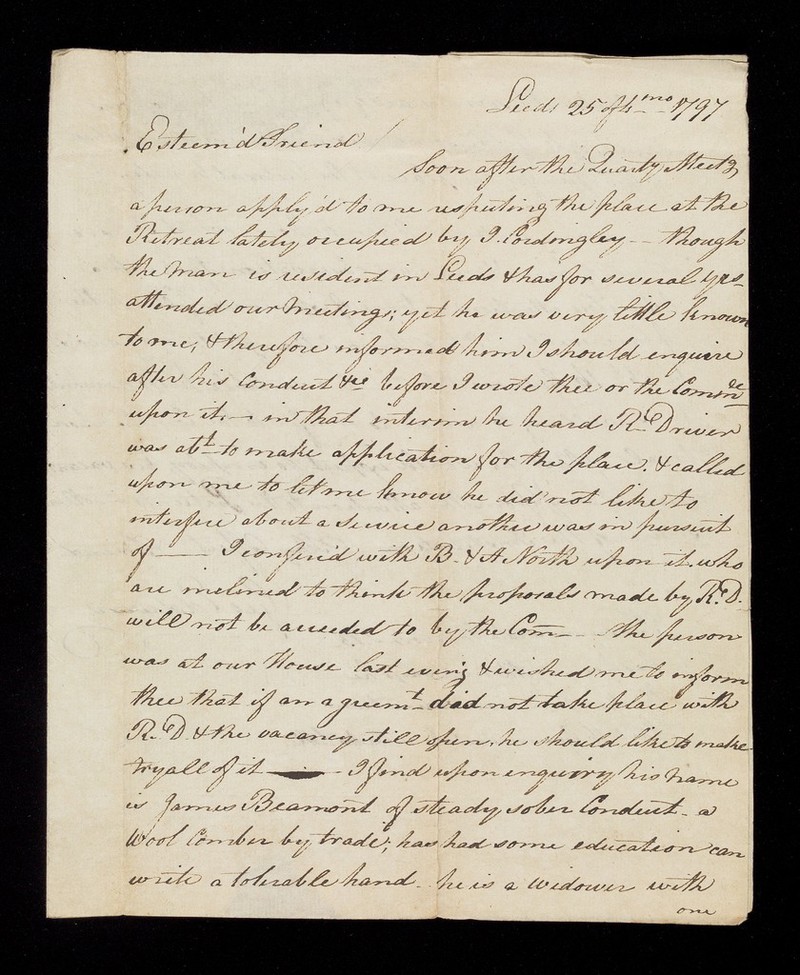 Leeds 25 of 4 mo 1797
Esteem'd Friend
Soon after the Quarty Meetg
a person apply'd to me respecting the place at the
Retreat lately occupied by J. Cordingley -- though
the Man is resident in Leeds & has for several yrs
attended our Meetings; yet he was very little known
to me; & therefore informed him I should enquire
after his Conduct &ce before I wrote thee or the Commte
upon it -- in that interim he heard Rd Driver
was abt to make application for the place, & called
upon me to let me know he did not like to
interfere about a Service another was in pursuit
of -- I confer'd with B. & A North upon it who
are inclined to think the proposals made by Rd D.
will not be acceeded to by the Com -- the person
was at our House last eveng & wished me to inform
thee that if an agreemt did not take place with
Rd D. & the vacancy still open, he should like to make
tryall of it -- I find upon enquiry his Name
is James Beamont of steady sober Conduct - a
Wool Comber by trade; has had some education can
write a tolerable hand - he is a Widower with
one